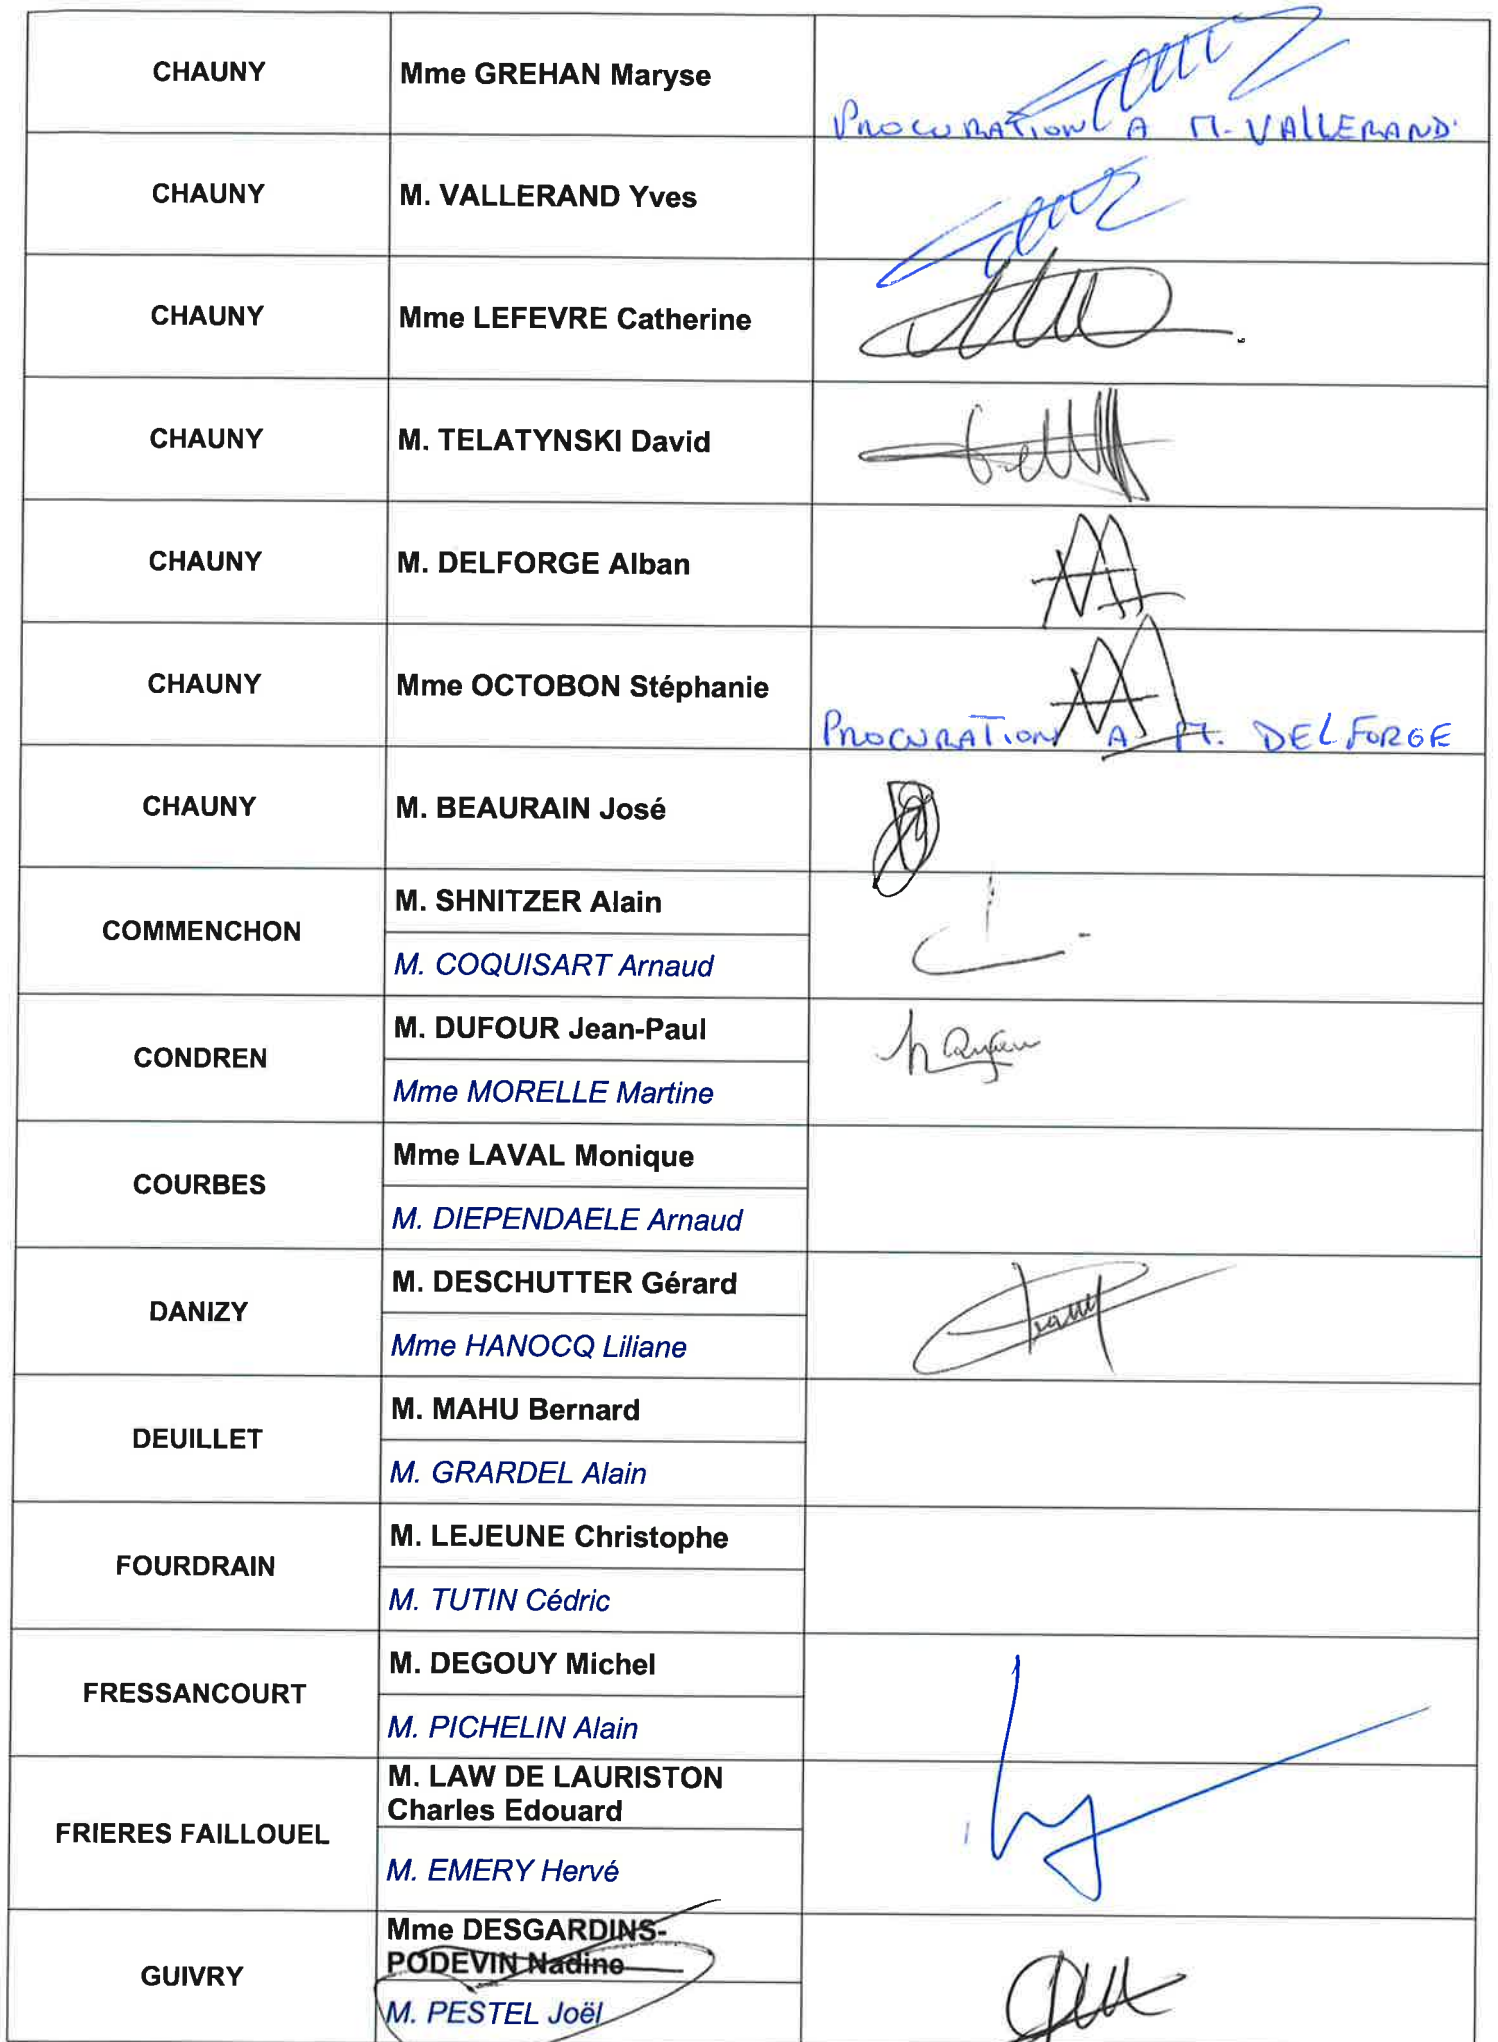 CHAUNY
Mme GREHAN Maryse
PROCURATION A M. VALLERAND.
CHAUNY
M. VALLERAND Yves
CHAUNY
Mme LEFEVRE Catherine
CHAUNY
M. TELATYNSKI David
CHAUNY
M. DELFORGE Alban
CHAUNY
Mme OCTOBON Stéphanie
PROCURATION A M. DELFORGE
CHAUNY
M. BEAURAIN José
COMMENCHON
M. SHNITZER Alain
M. COQUISART Arnaud
CONDREN
M. DUFOUR Jean-Paul
Mme MORELLE Martine
COURBES
Mme LAVAL Monique
M. DIEPENDAELE Arnaud
DANIZY
M. DESCHUTTER Gérard
Mme HANOCQ Liliane
DEUILLET
M. MAHU Bernard
M. GRARDEL Alain
FOURDRAIN
M. LEJEUNE Christophe
M. TUTIN Cédric
FRESSANCOURT
M. DEGOUY Michel
M. PICHELIN Alain
FRIERES FAILLOUEL
M. LAW DE LAURISTON
Charles Edouard
M. EMERY Hervé
GUIVRY
Mme DESGARDINS-
PODEVIN Nadine
M. PESTEL Joël